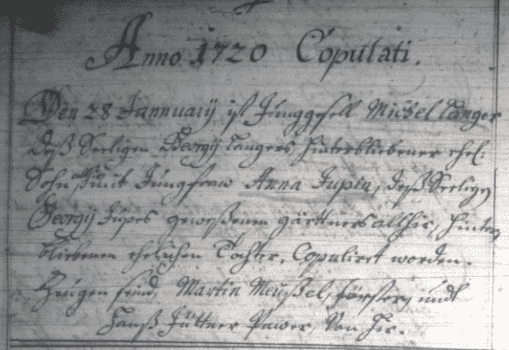 Anno 1720 Copulati.
Den 28 Jannuarÿ ist Junggesell Michel Langer
deß Seeligen Georgÿ Langers hinterbliebener ehel:
Sohn allhir mit Jungfraw Anna Jupin, deß Seeligen
Georgÿ Jupes geweßenen gärttners allhir, hinter
bliebenen ehelichen Tochter, Copuliret worden.
Zeugen seind, Martin Meußel, förster, undt
Hanß Jüttner Pawer, Von hir.